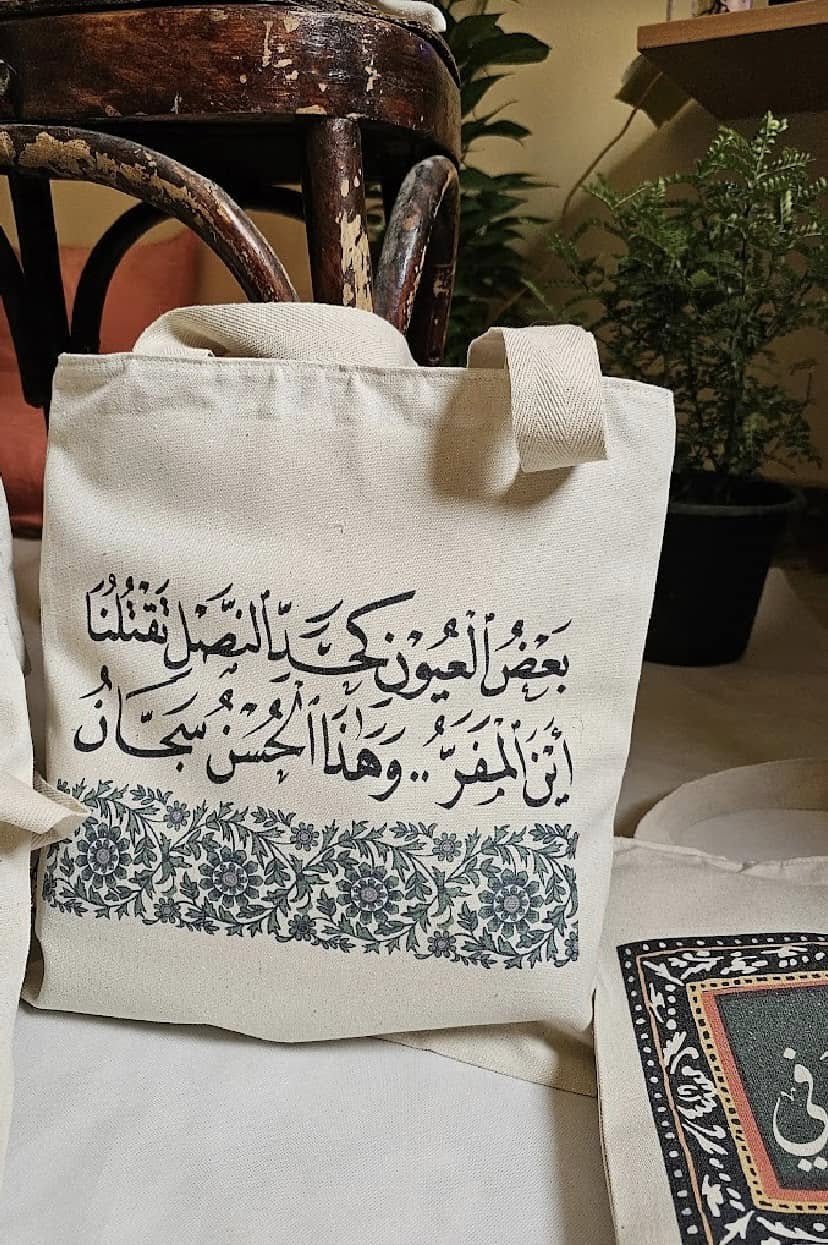 بَعْضُ ٱلْعُيُوْنِ كَحَدِّ ٱلنَّصْلِ تَقْتُلُنَا
أَيْنَ ٱلْمَفَرُّ .. وَهَذَا ٱلْحُسْنُ سَجَّانُ
في